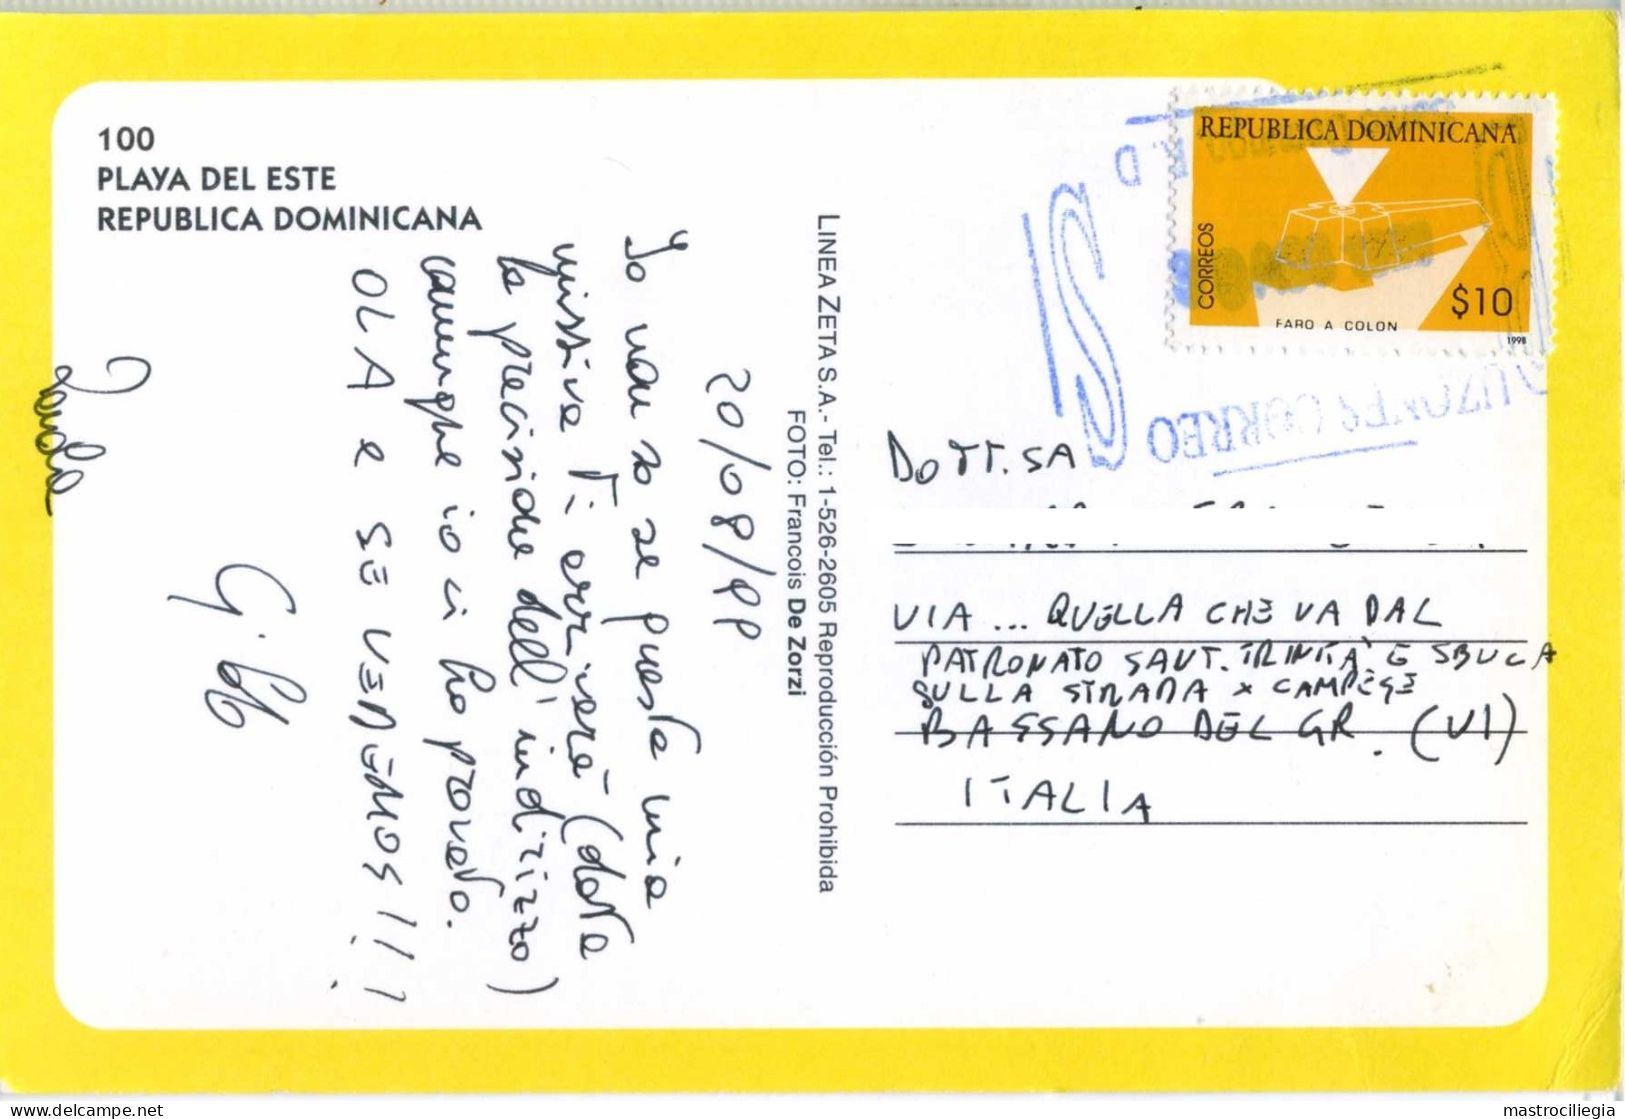 100
PLAYA DEL ESTE
REPUBLICA DOMINICANA
20/08/99
Io non so se questa mia
missiva Ti arriverà (data
la precisione dell'indirizzo)
comunque io ci ho provato.
OLA e SE VEDEMOS!!!
LINEA ZETA S.A.- Tel.: 1-526-2605 Reproducción Prohibida
FOTO: Francois De Zorzi
REPUBLICA DOMINICANA
CORREOS
$10
FARO A COLON
1998
R.D
CORREO
DOTT.SA
VIA ... QUELLA CHE VA DAL
PATRONATO SANT. TRINITÀ E SBUCA
SULLA STRADA X CAMPESE
BASSANO DEL GR. (VI)
ITALIA
delcampe.net
mastrociliegia